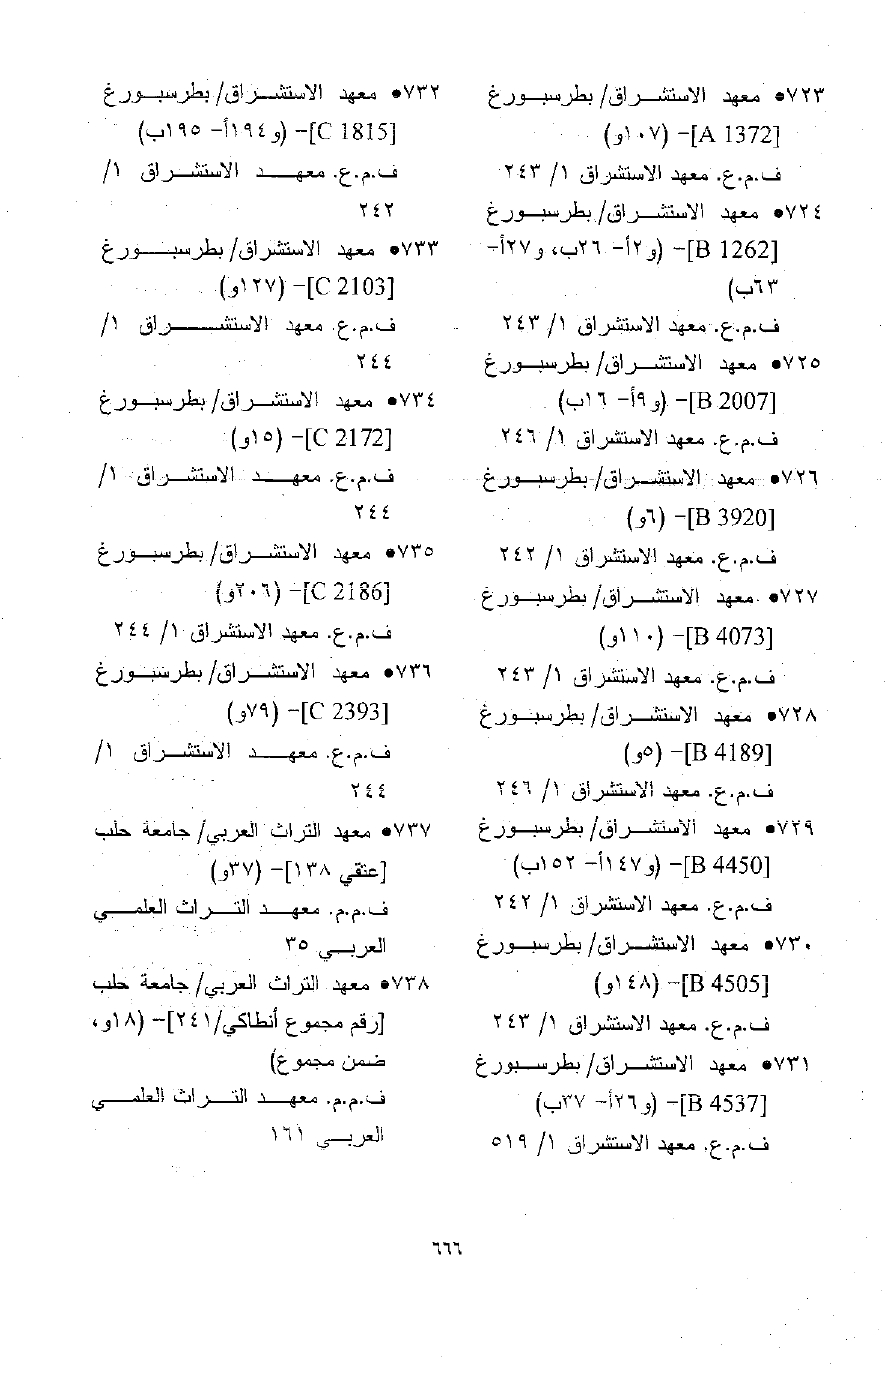 •٧٢٣ معهد الاستشراق/ بطرسبورغ
[A 1372]- (١٠٧و)
ف.م.ع. معهد الاستشراق ١/ ٢٤٣
•٧٢٤ معهد الاستشراق/ بطرسبورغ
[B 1262]- (و٢أ- ٢٦ب، و٢٧أ-
٦٣ب)
ف.م.ع. معهد الاستشراق ١/ ٢٤٣
•٧٢٥ معهد الاستشراق/ بطرسبورغ
[B 2007]- (و٩أ- ١٦ب)
ف.م.ع. معهد الاستشراق ١/ ٢٤٦
•٧٢٦ معهد الاستشراق/ بطرسبورغ
[B 3920]- (٦و)
ف.م.ع. معهد الاستشراق ١/ ٢٤٢
•٧٢٧ معهد الاستشراق/ بطرسبورغ
[B 4073]- (١١٠و)
ف.م.ع. معهد الاستشراق ١/ ٢٤٣
•٧٢٨ معهد الاستشراق/ بطرسبورغ
[B 4189]- (٥و)
ف.م.ع. معهد الاستشراق ١/ ٢٤٦
•٧٢٩ معهد الاستشراق/ بطرسبورغ
[B 4450]- (و١٤٧أ- ١٥٢ب)
ف.م.ع. معهد الاستشراق ١/ ٢٤٢
•٧٣٠ معهد الاستشراق/ بطرسبورغ
[B 4505]- (١٤٨و)
ف.م.ع. معهد الاستشراق ١/ ٢٤٣
•٧٣١ معهد الاستشراق/ بطرسبورغ
[B 4537]- (و٢٦أ- ٣٧ب)
ف.م.ع. معهد الاستشراق ١/ ٥١٩
•٧٣٢ معهد الاستشراق/ بطرسبورغ
[C 1815]- (و١٩٤أ- ١٩٥ب)
ف.م.ع. معهد الاستشراق ١/
٢٤٢
•٧٣٣ معهد الاستشراق/ بطرسبورغ
[C 2103]- (١٢٧و)
ف.م.ع. معهد الاستشراق ١/
٢٤٤
•٧٣٤ معهد الاستشراق/ بطرسبورغ
[C 2172]- (١٥و)
ف.م.ع. معهد الاستشراق ١/
٢٤٤
•٧٣٥ معهد الاستشراق/ بطرسبورغ
[C 2186]- (٢٠٦و)
ف.م.ع. معهد الاستشراق ١/ ٢٤٤
•٧٣٦ معهد الاستشراق/ بطرسبورغ
[C 2393]- (٧٩و)
ف.م.ع. معهد الاستشراق ١/
٢٤٤
•٧٣٧ معهد التراث العربي/ جامعة حلب
[عتقي ١٣٨]- (٣٧و)
ف.م.م. معهد التراث العلمي
العربي ٣٥
•٧٣٨ معهد التراث العربي/ جامعة حلب
[رقم مجموع أنطاكي/٢٤١]- (١٨و،
ضمن مجموع)
ف.م.م. معهد التراث العلمي
العربي ١٦١
٦٦٦